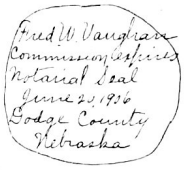 Fred W. Vaughan
Commission expires
Notarial Seal
June 20, 1936
Dodge County
Nebraska